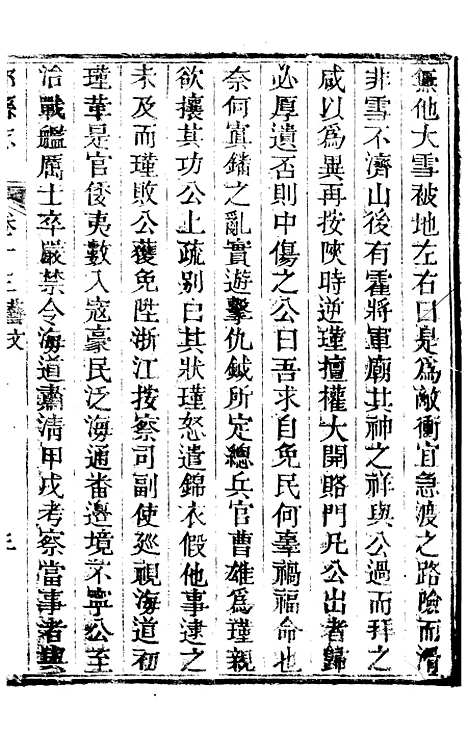 無他大雪被地左右曰是爲敵衝宜急渡之路險而滑
非雪不濟山後有霍將軍廟其神之祥與公過而拜之
咸以爲異再按陝時逆瑾擅權大開賂門凡公出者歸
必厚遺否則中傷之公曰吾求自免民何辜禍福命也
奈何寘鐇之亂實遊擊仇鉞所定總兵官曹雄爲瑾親
欲攘其功公上疏别白其狀瑾怒遣錦衣假他事逮之
未及而瑾敗公獲免陞浙江按察司副使廵視海道初
瑾華是官倭夷數入寇豪民泛海通畨邊境不寧公至
治戰艦厲士卒嚴禁令海道肅清甲戌考察當事者與
縣志
卷十三藝文
三